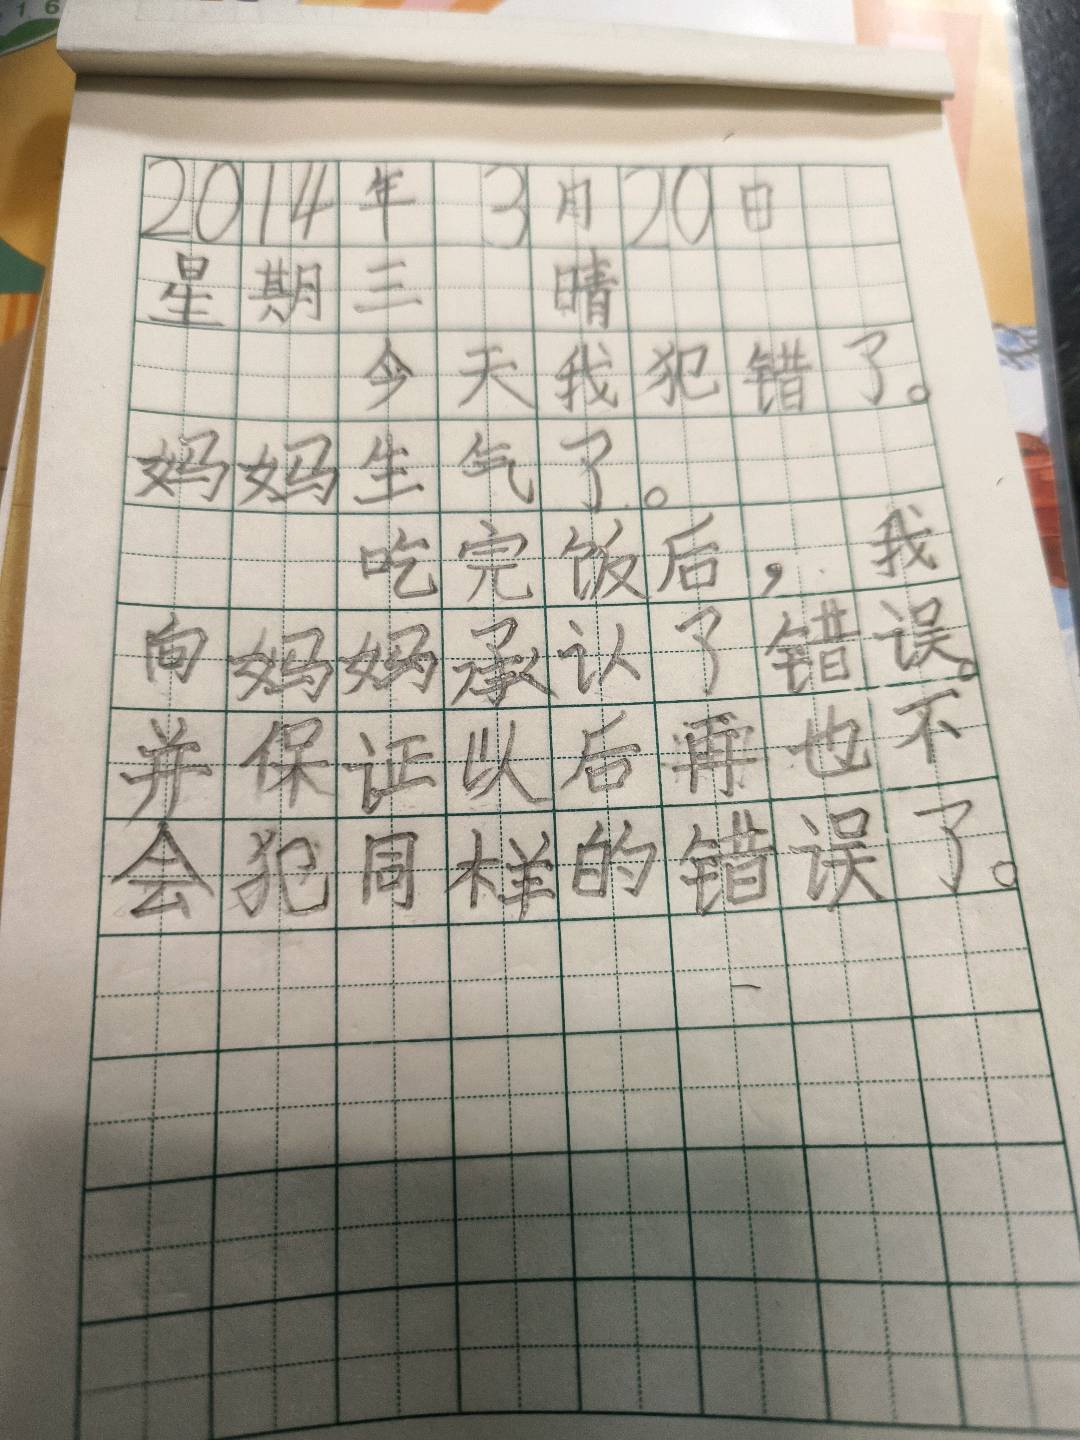 16
2014年 3月20日
星期三 晴
今天我犯错了。
妈妈生气了。
吃完饭后，我
向妈妈承认了错误。
并保证以后再也不
会犯同样的错误了。